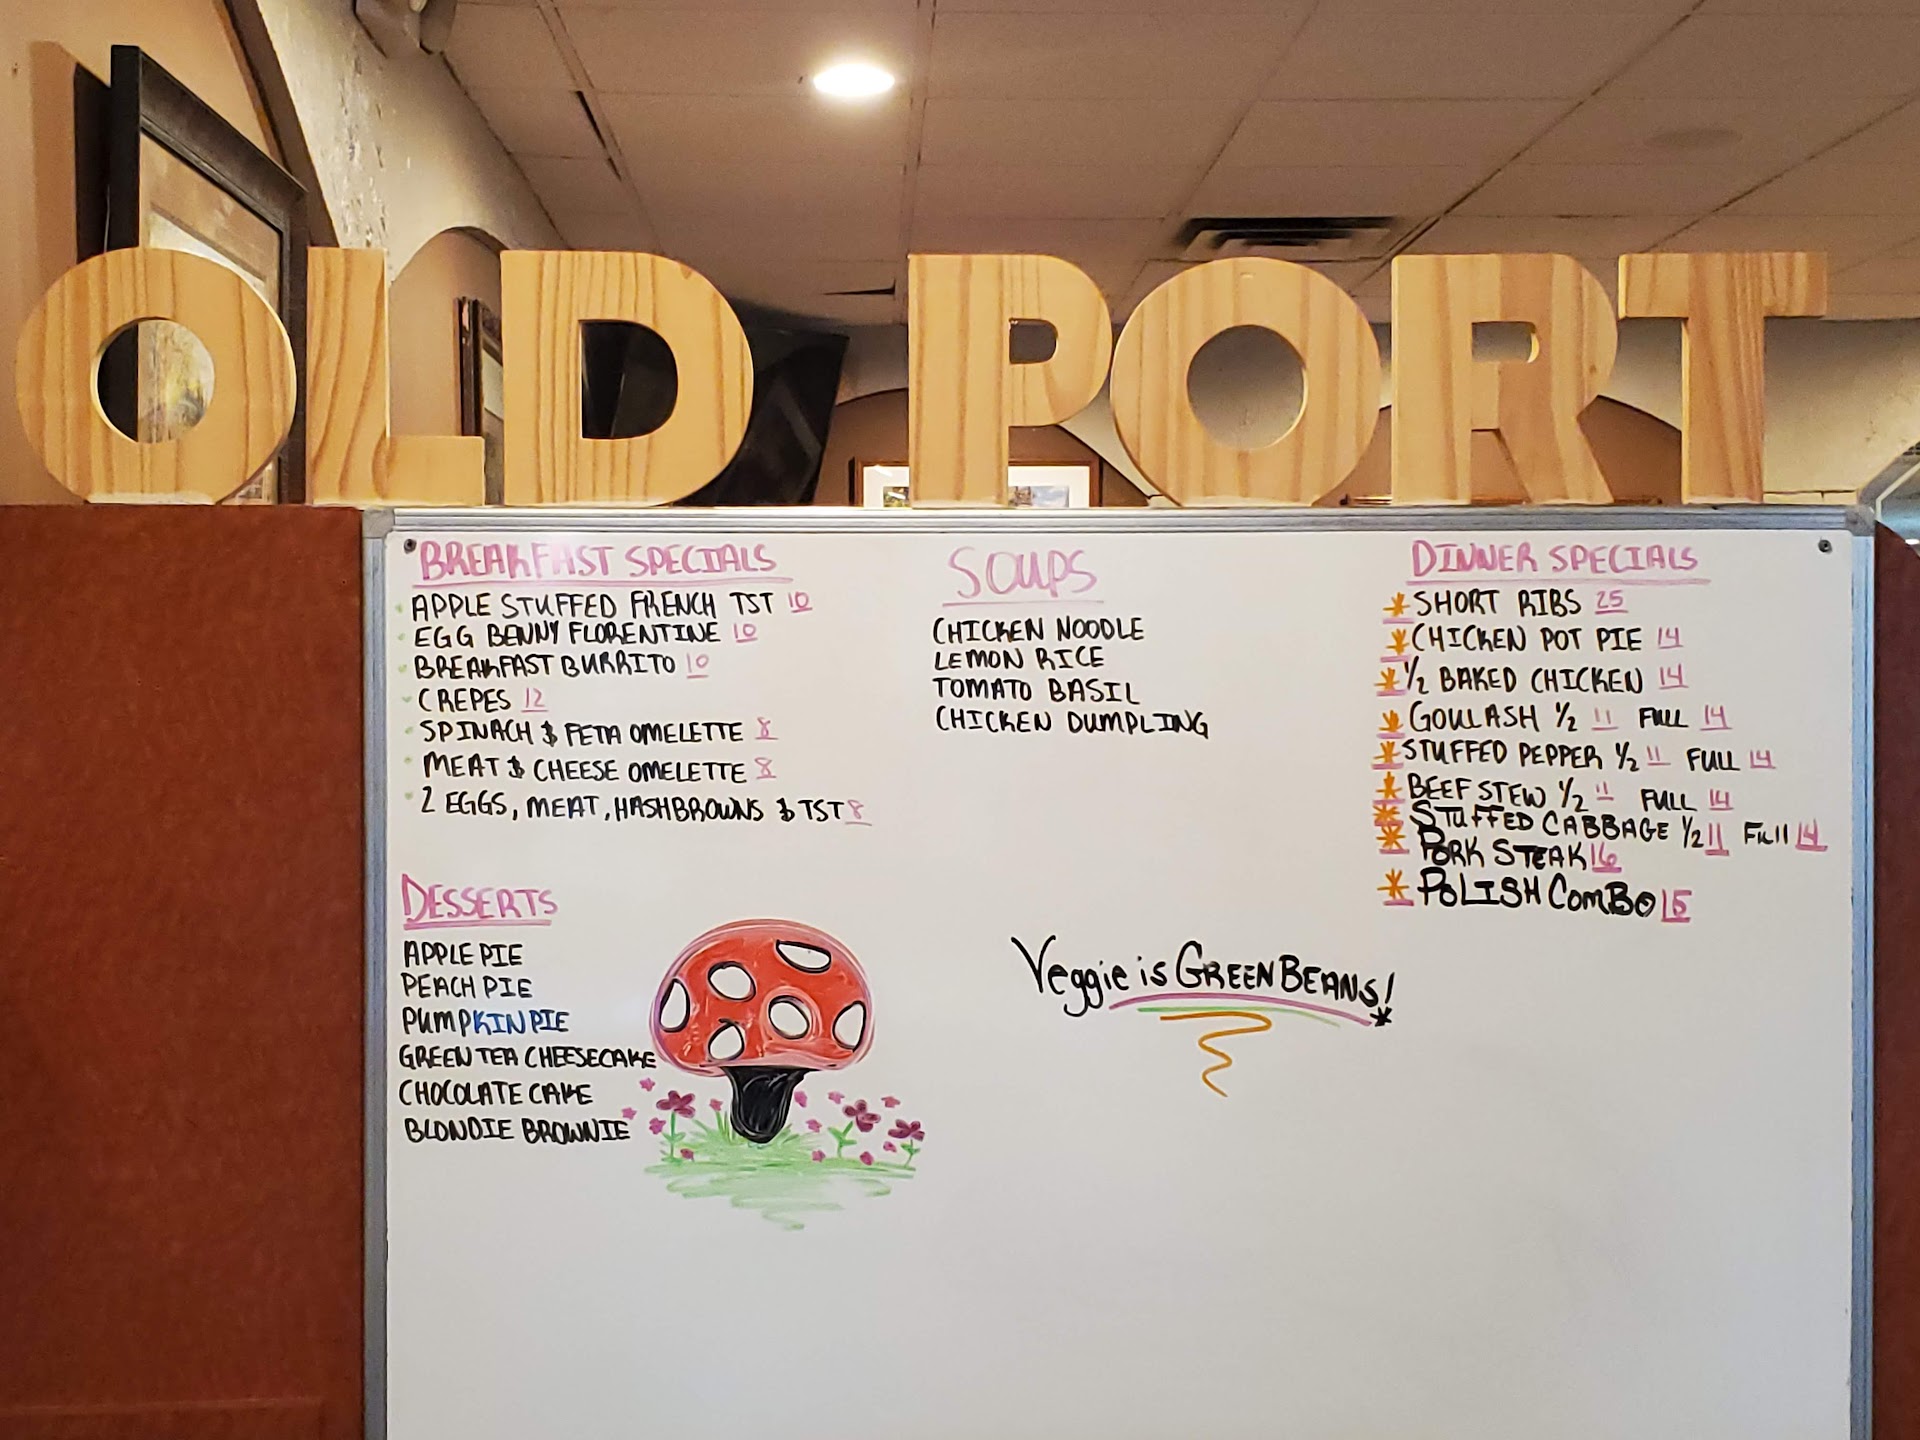 OLD PORT
BREAKFAST SPECIALS
APPLE STUFFED FRENCH TST 10
EGG BENNY FLORENTINE 10
BREAKFAST BURRITO 10
CREPES 12
SPINACH & FETA OMELETTE 8
MEAT & CHEESE OMELETTE 8
2 EGGS, MEAT, HASHBROWNS & TST 8
DESSERTS
APPLE PIE
PEACH PIE
PUMPKIN PIE
GREEN TEA CHEESECAKE
CHOCOLATE CAKE
BLONDIE BROWNIE
SOUPS
CHICKEN NOODLE
LEMON RICE
TOMATO BASIL
CHICKEN DUMPLING
Veggie is GREEN BEANS!
DINNER SPECIALS
* SHORT RIBS 25
* CHICKEN POT PIE 14
* 1/2 BAKED CHICKEN 14
* GOULASH 1/2 11 FULL 14
* STUFFED PEPPER 1/2 11 FULL 14
* BEEF STEW 1/2 11 FULL 14
* STUFFED CABBAGE 1/2 11 Full 14
* PORK STEAK 16
* POLISH COMBO 15